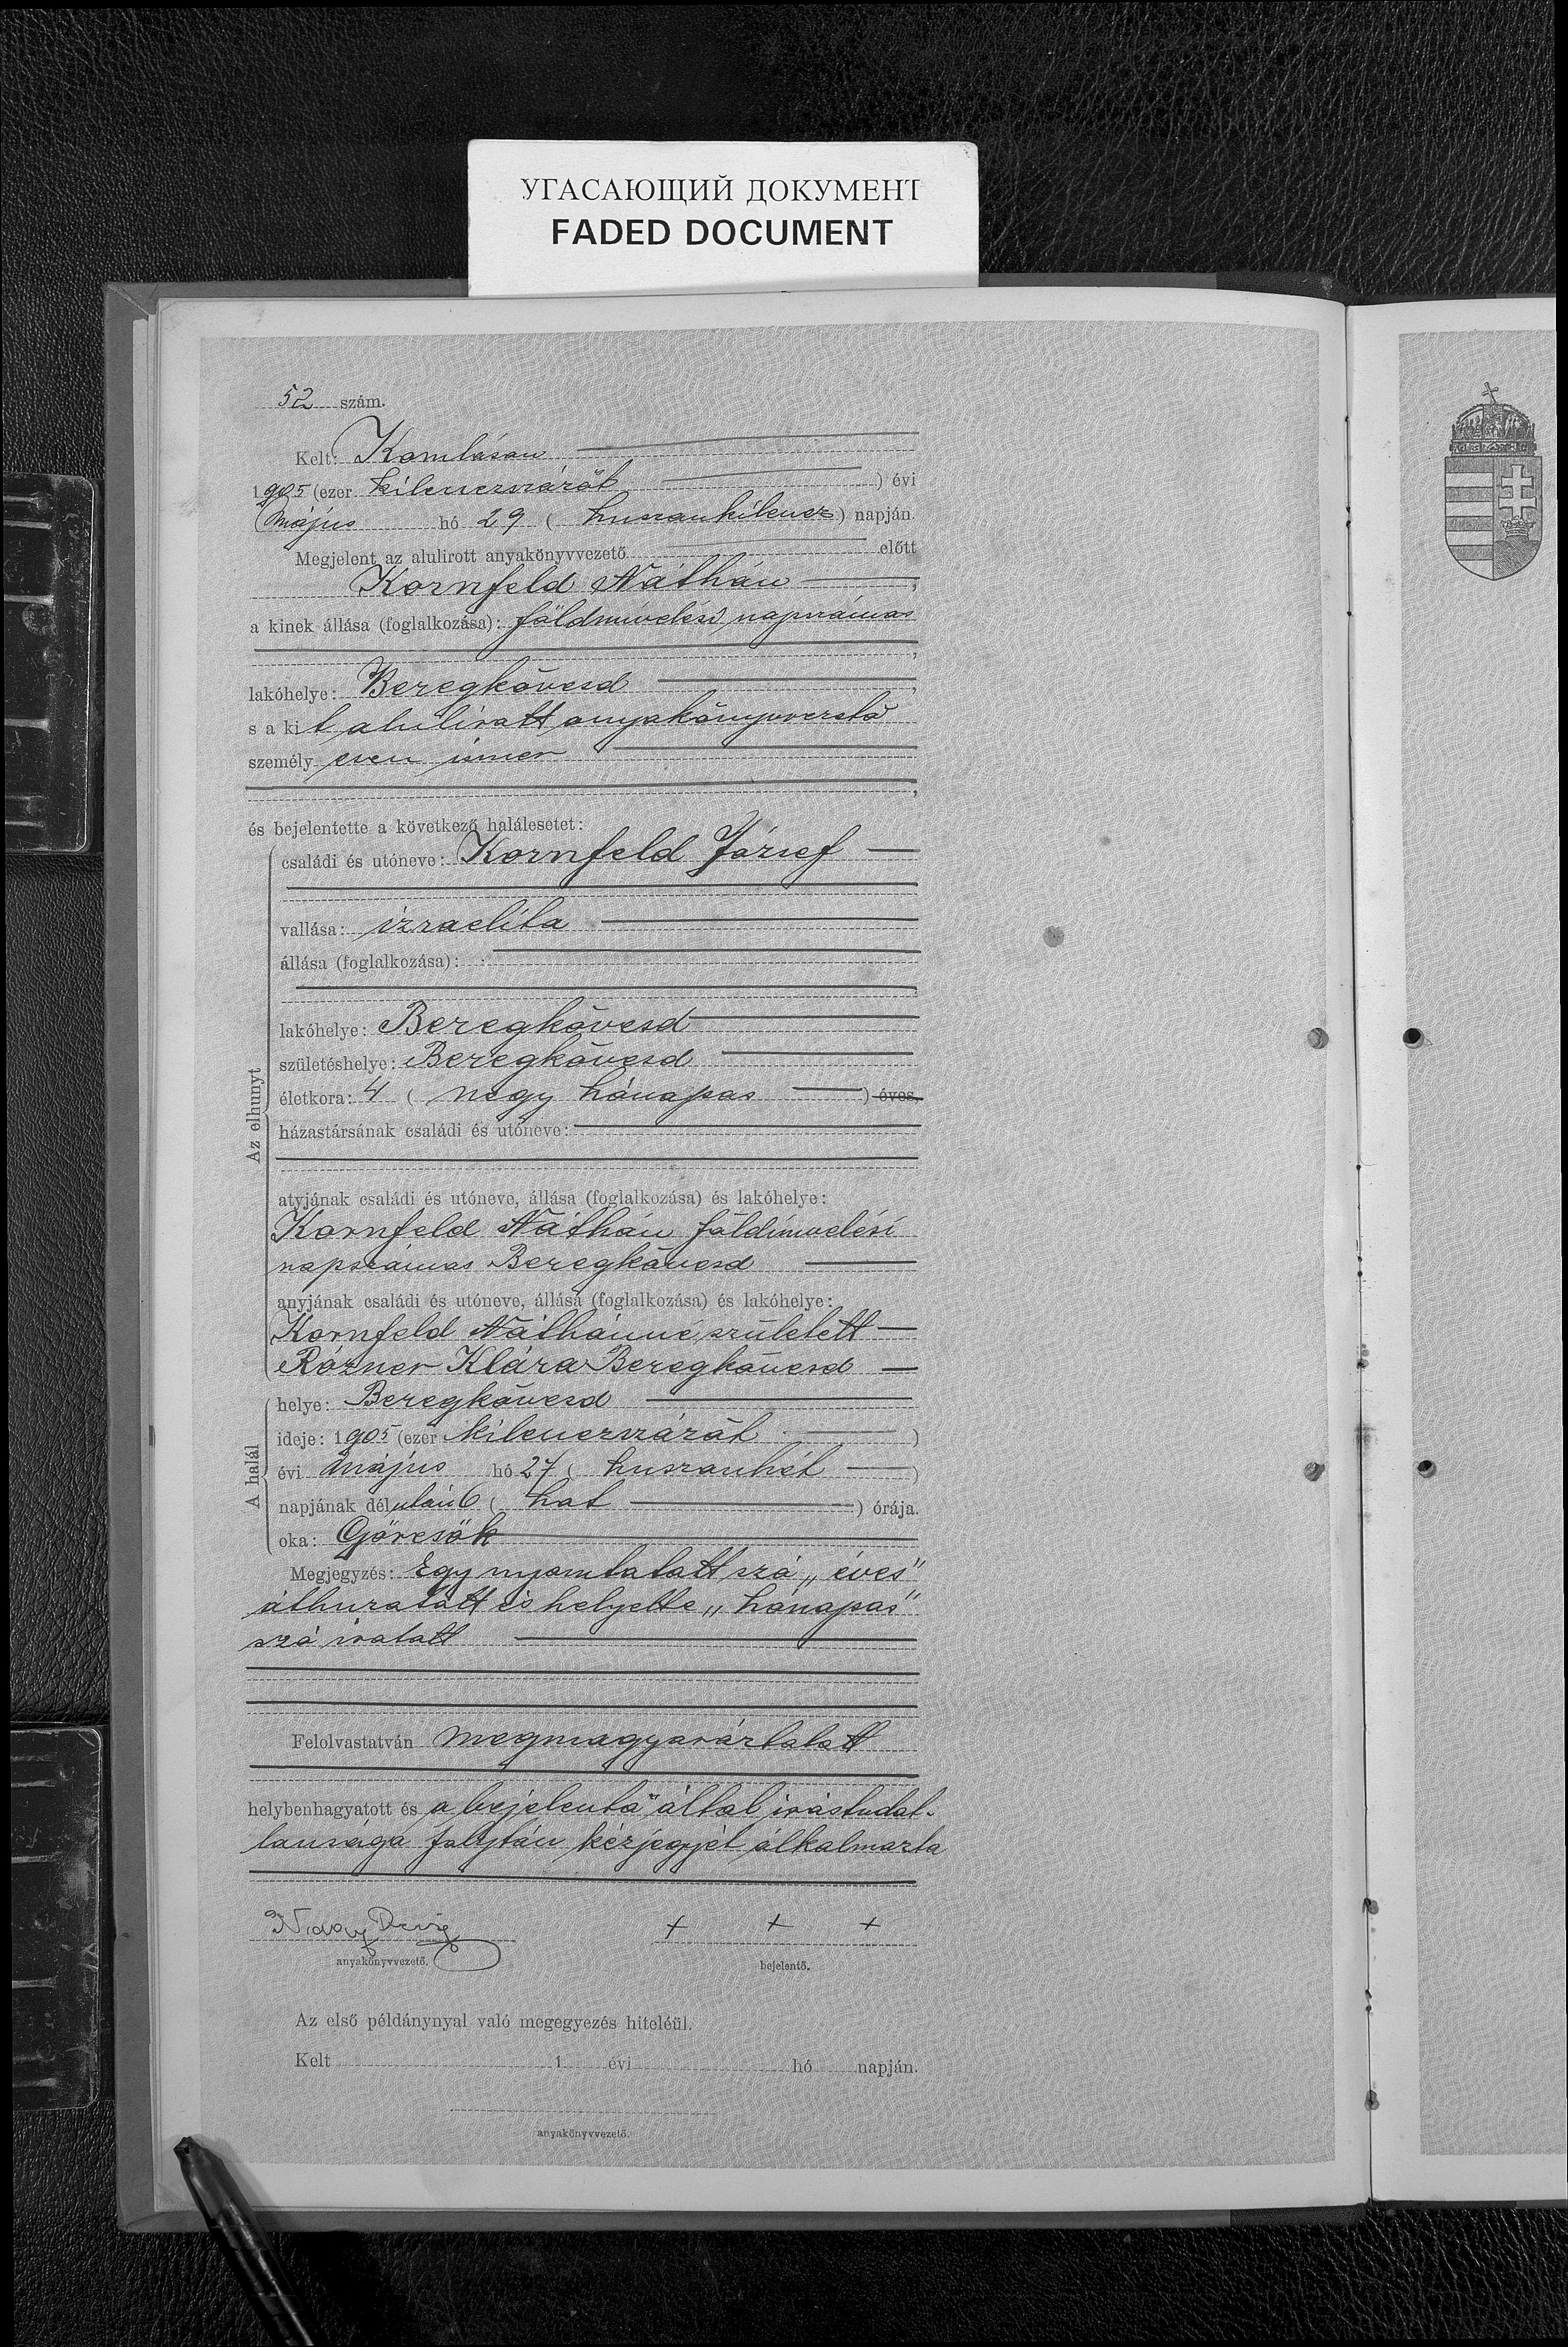 УГАСАЮЩИЙ ДОКУМЕНТ
FADED DOCUMENT
52 szám.
Kelt: Komlóson
1905 (ezer kilenczszázöt) évi
Május hó 29 (huszonkilencz) napján.
Megjelent az alulirott anyakönyvvezető előtt
Kornfeld Náthán,
a kinek állása (foglalkozása): földmivelési napszámos
,
lakóhelye: Beregkövesd,
s a kit alulirott anyakönyvvezető
személyesen ismer
,
és bejelentette a következő halálesetet:
Az elhunyt
családi és utóneve: Kornfeld József
vallása: izraelita
állása (foglalkozása):
lakóhelye: Beregkövesd
születéshelye: Beregkövesd
életkora: 4 (négy hónapos) éves,
házastársának családi és utóneve:
atyjának családi és utóneve, állása (foglalkozása) és lakóhelye:
Kornfeld Náthán földmivelési
napszámos Beregkövesd
anyjának családi és utóneve, állása (foglalkozása) és lakóhelye:
Kornfeld Náthánné született
Rózner Klára Beregkövesd
A halál
helye: Beregkövesd
ideje: 1905 (ezer kilenczszázöt)
évi Május hó 27 (huszonhét)
napjának délután 6 (hat) órája.
oka: Görcsök
Megjegyzés: Egy nyomtatott szó „éves"
áthuzatott és helyette „hónapos"
szó iratott
Felolvastatván megmagyaráztatott
helybenhagyatott és a bejelentő által irástudat-
lansága folytán kézjegyjét alkalmazta
+ + +
anyakönyvvezető.
bejelentő.
Az első példánynyal való megegyezés hiteléül.
Kelt 1 évi hó napján.
anyakönyvvezető.